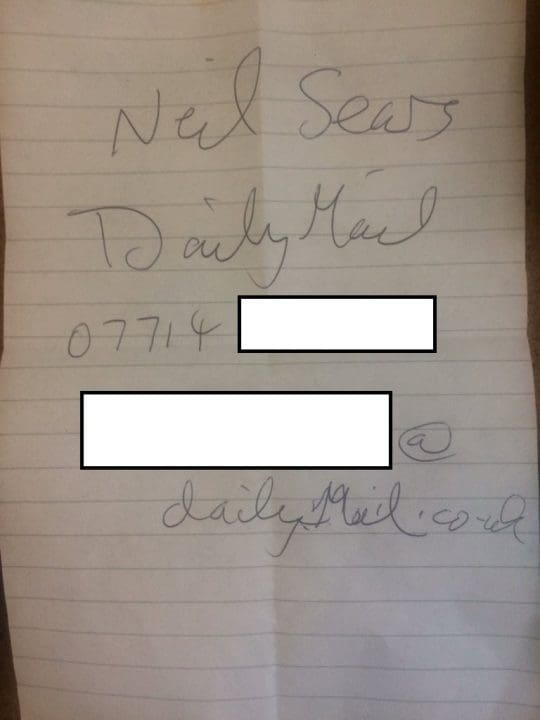 Neil Sears
Daily Mail
07714
@
dailyMail.co.uk